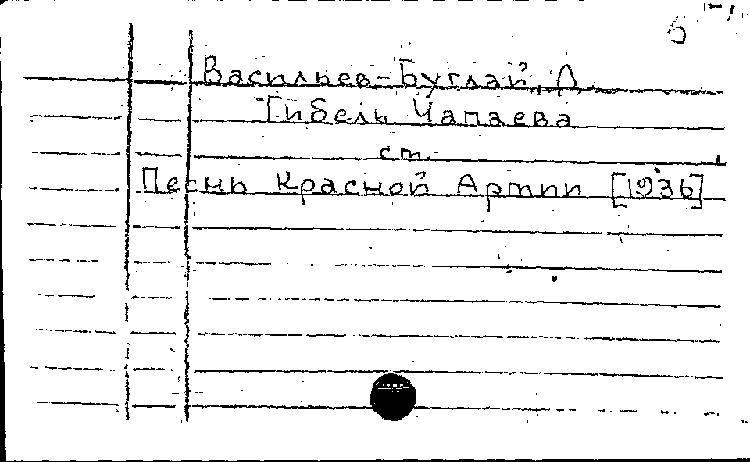 Васильев-Буглай, Д.
Гибель Чапаева
ст.
Песни Красной Армии [1936]